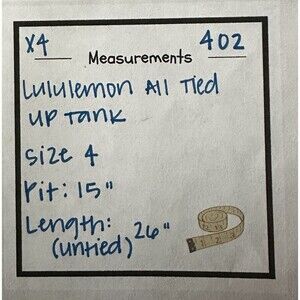 X4
402
Measurements
Lululemon All Tied
up Tank
Size 4
Pit: 15"
Length: 26"
(untied)
1 2 3